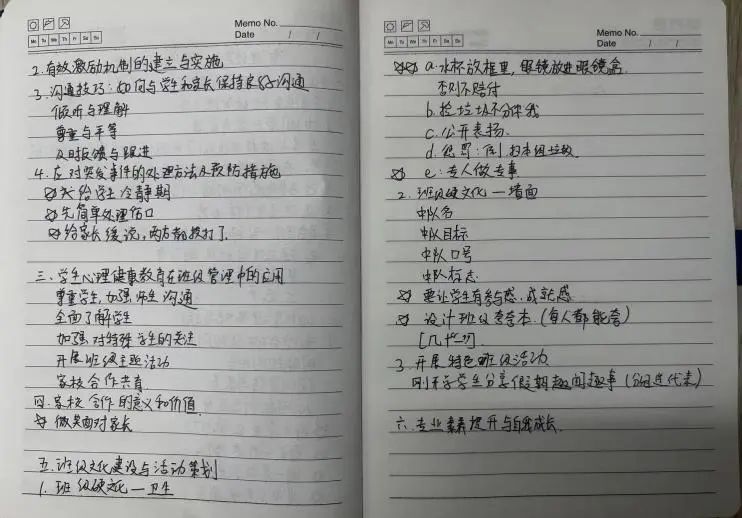 Memo No.
Mo Tu We Th Fr Sa Su
Date / /
2.有效激励机制的建立与实施
3.沟通技巧:如何与学生和家长保持良好沟通
倾听与理解
尊重与平等
及时反馈与跟进
4.应对突发事件的处理方法及预防措施
给学生冷静期
先简单处理伤口
给家长缓说,两方都挨打了.
三.学生心理健康教育在班级管理中的应用
尊重学生,加强师生沟通
全面了解学生
加强对特殊学生的关注
开展班级主题活动
家校合作共育
四.家校合作的意义和价值.
微笑面对家长
五.班级文化建设与活动策划
1.班级硬文化—卫生
Memo No.
Mo Tu We Th Fr Sa Su
Date / /
a.水杯放框里,眼镜放进眼镜盒.
否则不赔付
b.捡垃圾不分你我
c.公开表扬.
d.惩罚:倒,扫本组垃圾
e:专人做专事.
2.班级硬文化—墙面
中队名
中队目标
中队口号
中队标志
要让学生有参与感.成就感
设计班级夸夸本.(每人都能夸)
3.开展特色班级活动.
刚开学学生分享假期趣闻趣事(分组选代表)
六.专业素养提升与自我成长.